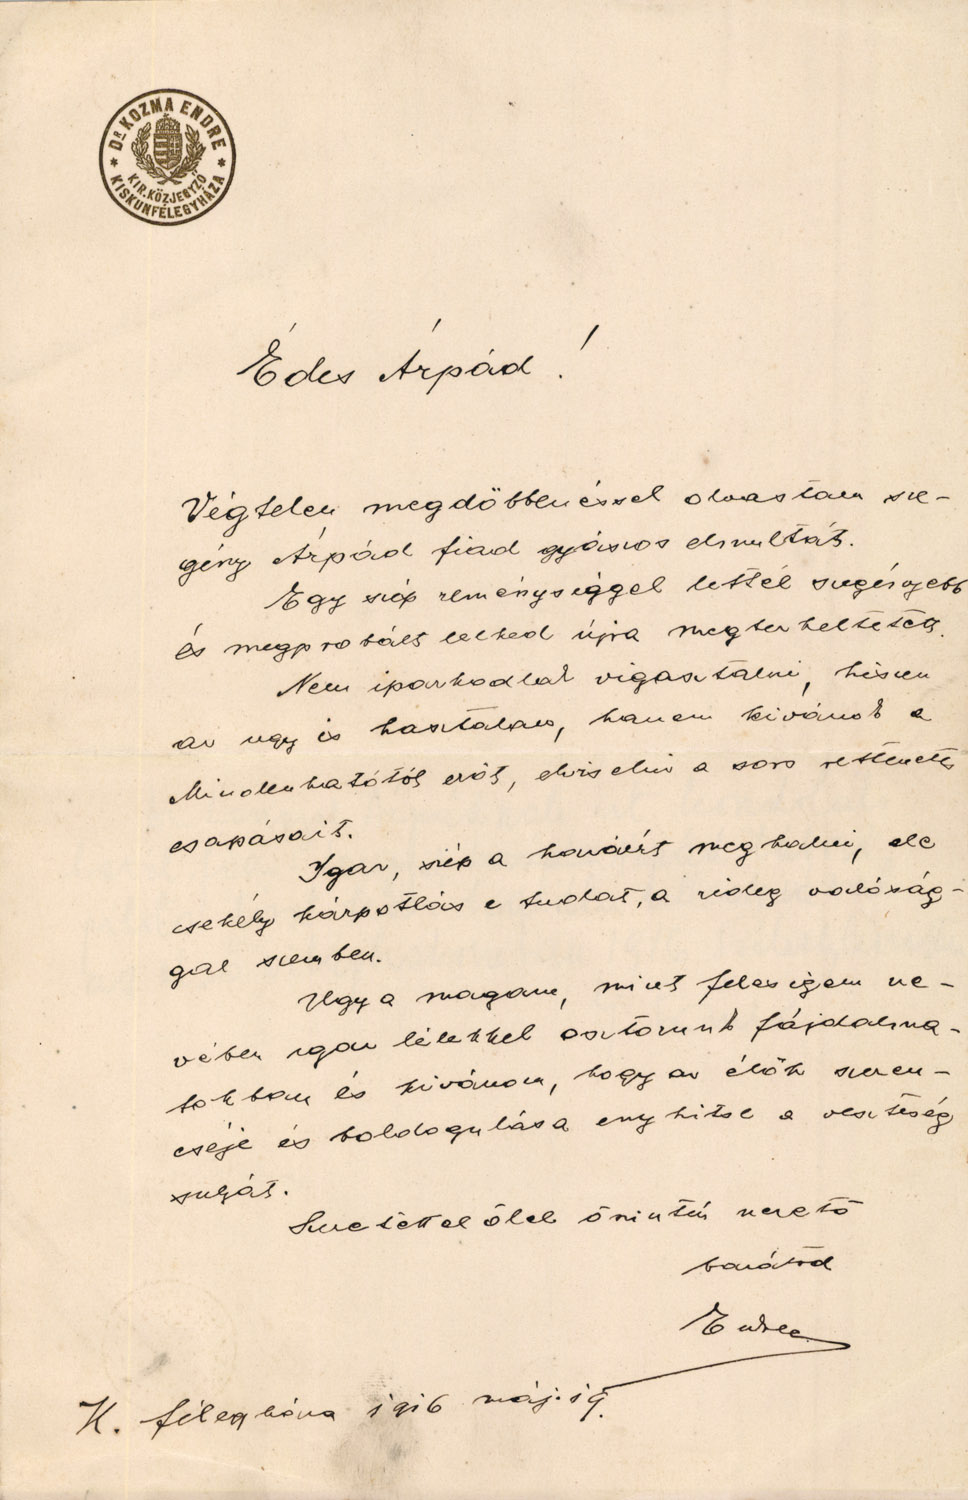 Dr KOZMA ENDRE
KIR. KÖZJEGYZŐ
KISKUNFÉLEGYHÁZA
Édes Árpád!
Végtelen megdöbbenéssel olvastam sze-
gény Árpád fiad gyászos elmultát.
Egy szép reménységgel lettél szegényebb
és megprobált lelked újra megterheltetett.
Nem iparkodlak vigasztalni, hiszen
az ugy is hasztalan, hanem kivánok a
Mindenhatótól erőt, elviselni a sors rettenetes
csapásait.
Igaz, szép a hazáért meghalni, de
csekély kárpotlás e tudat, a rideg valóság-
gal szemben.
Ugy a magam, mint feleségem ne-
vében igaz lélekkel osztozunk fájdalma-
tokban és kivánom, hogy az élők szeren-
cséje és boldogulása enyhitse a veszteség
sulyát.
Szeretettel ölel őszintén szerető
barátod
Endre
K. félegyháza 1916 máj. 19.